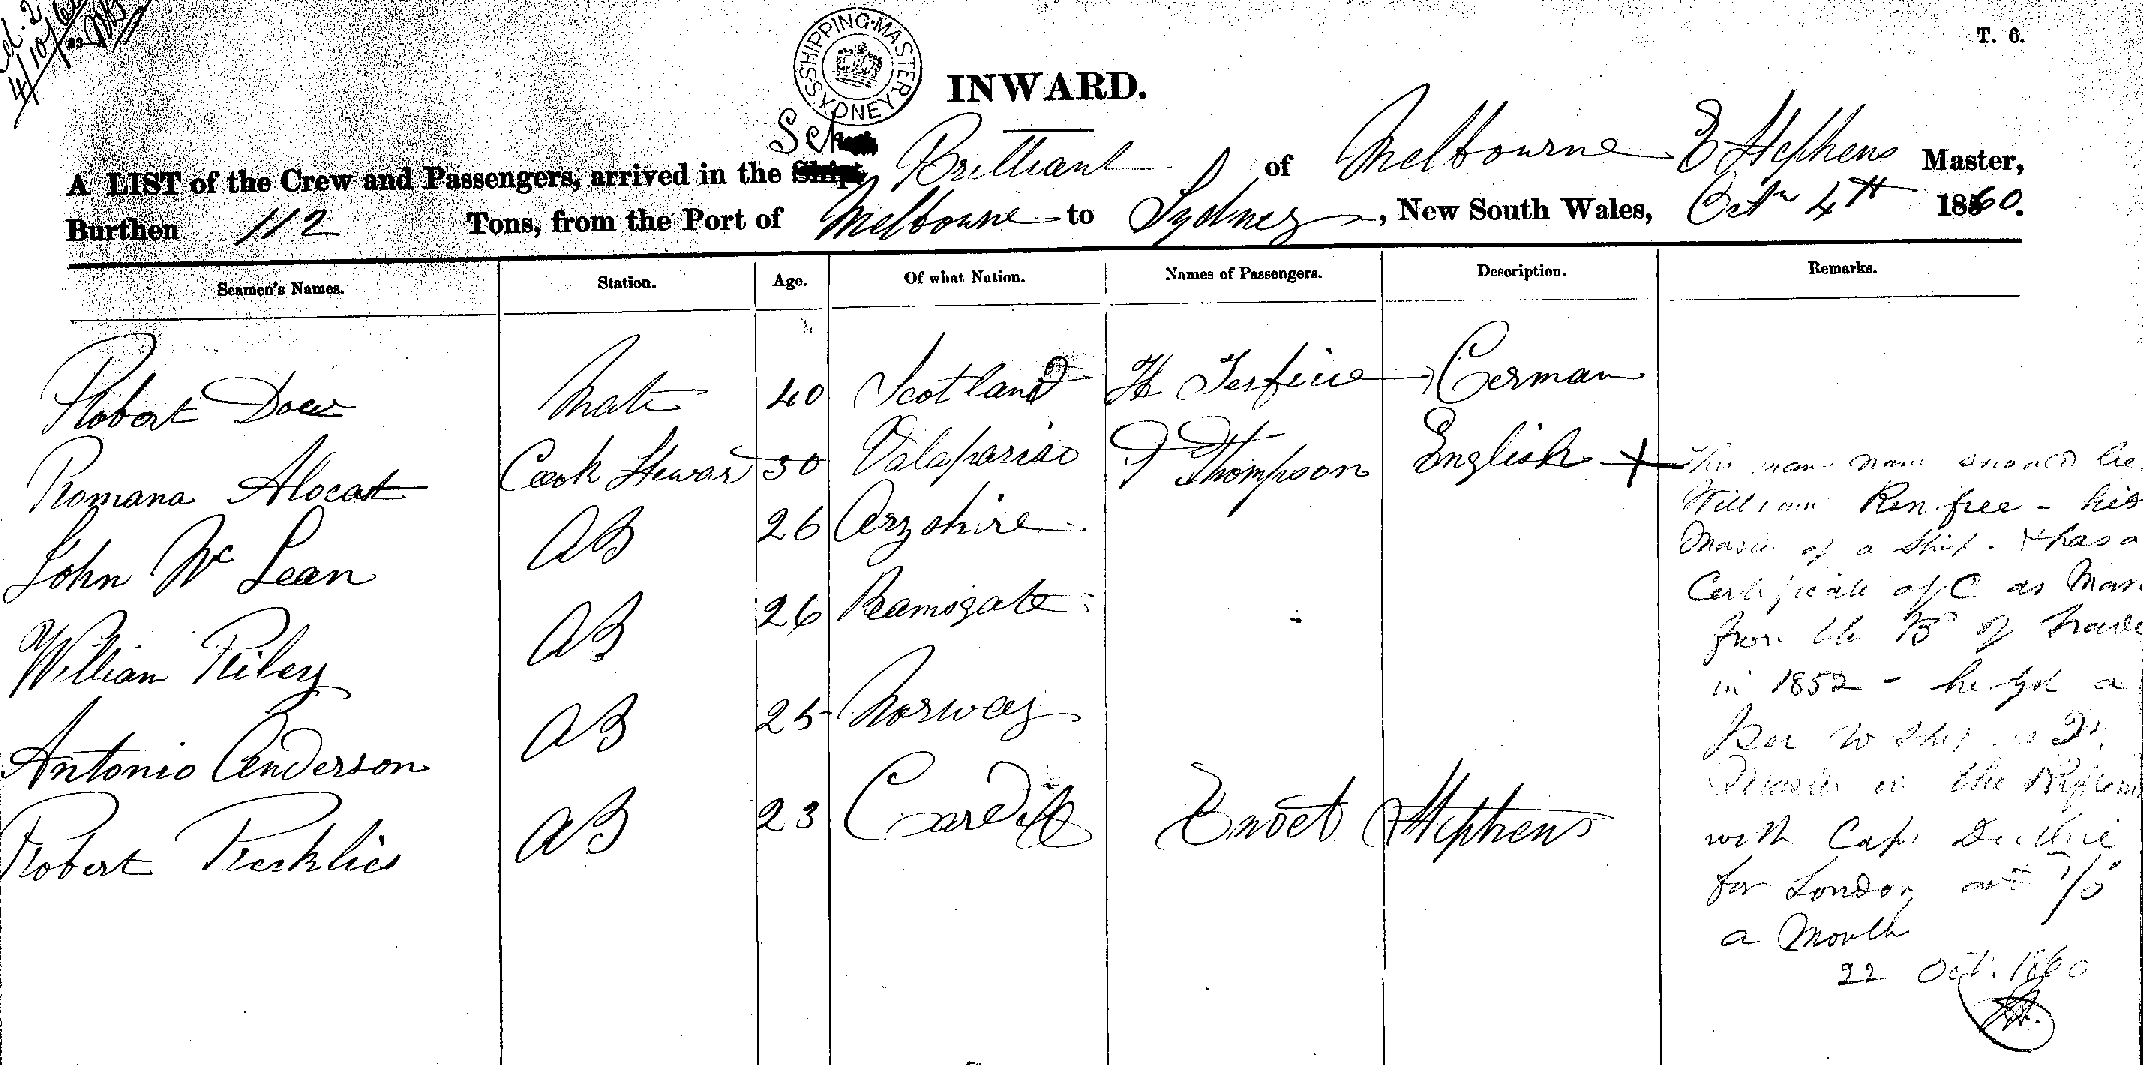 T. 6.
SHIPPING MASTER SYDNEY
INWARD.
Sch
A LIST of the Crew and Passengers, arrived in the Ship Brilliant of Melbourne E Stephens Master,
Burthen 112 Tons, from the Port of Melbourne to Sydney, New South Wales, Octr 4th 1860.
Seamen's Names. Station. Age. Of what Nation. Names of Passengers. Description. Remarks.
Robert Dow Mate 40 Scotland H German
Romana Alocat Cook Steward 30 Valapariso Thompson English + This man nam should be
William Renfree - his
John Mc Lean AB 26 Arzshire
Master of a Ship. & has a
Certificate of C as Mas
William Riley AB 26 Ramsgate
from the B of Trade
in 1852 - he got a
Antonio Anderson AB 25 Norway
Ber to Ship as 2d
in the
Robert AB 23 Cardiff Enoct Stephens
with Capt Duthie
for London at 1/5
a Month
22 Oct. 1860